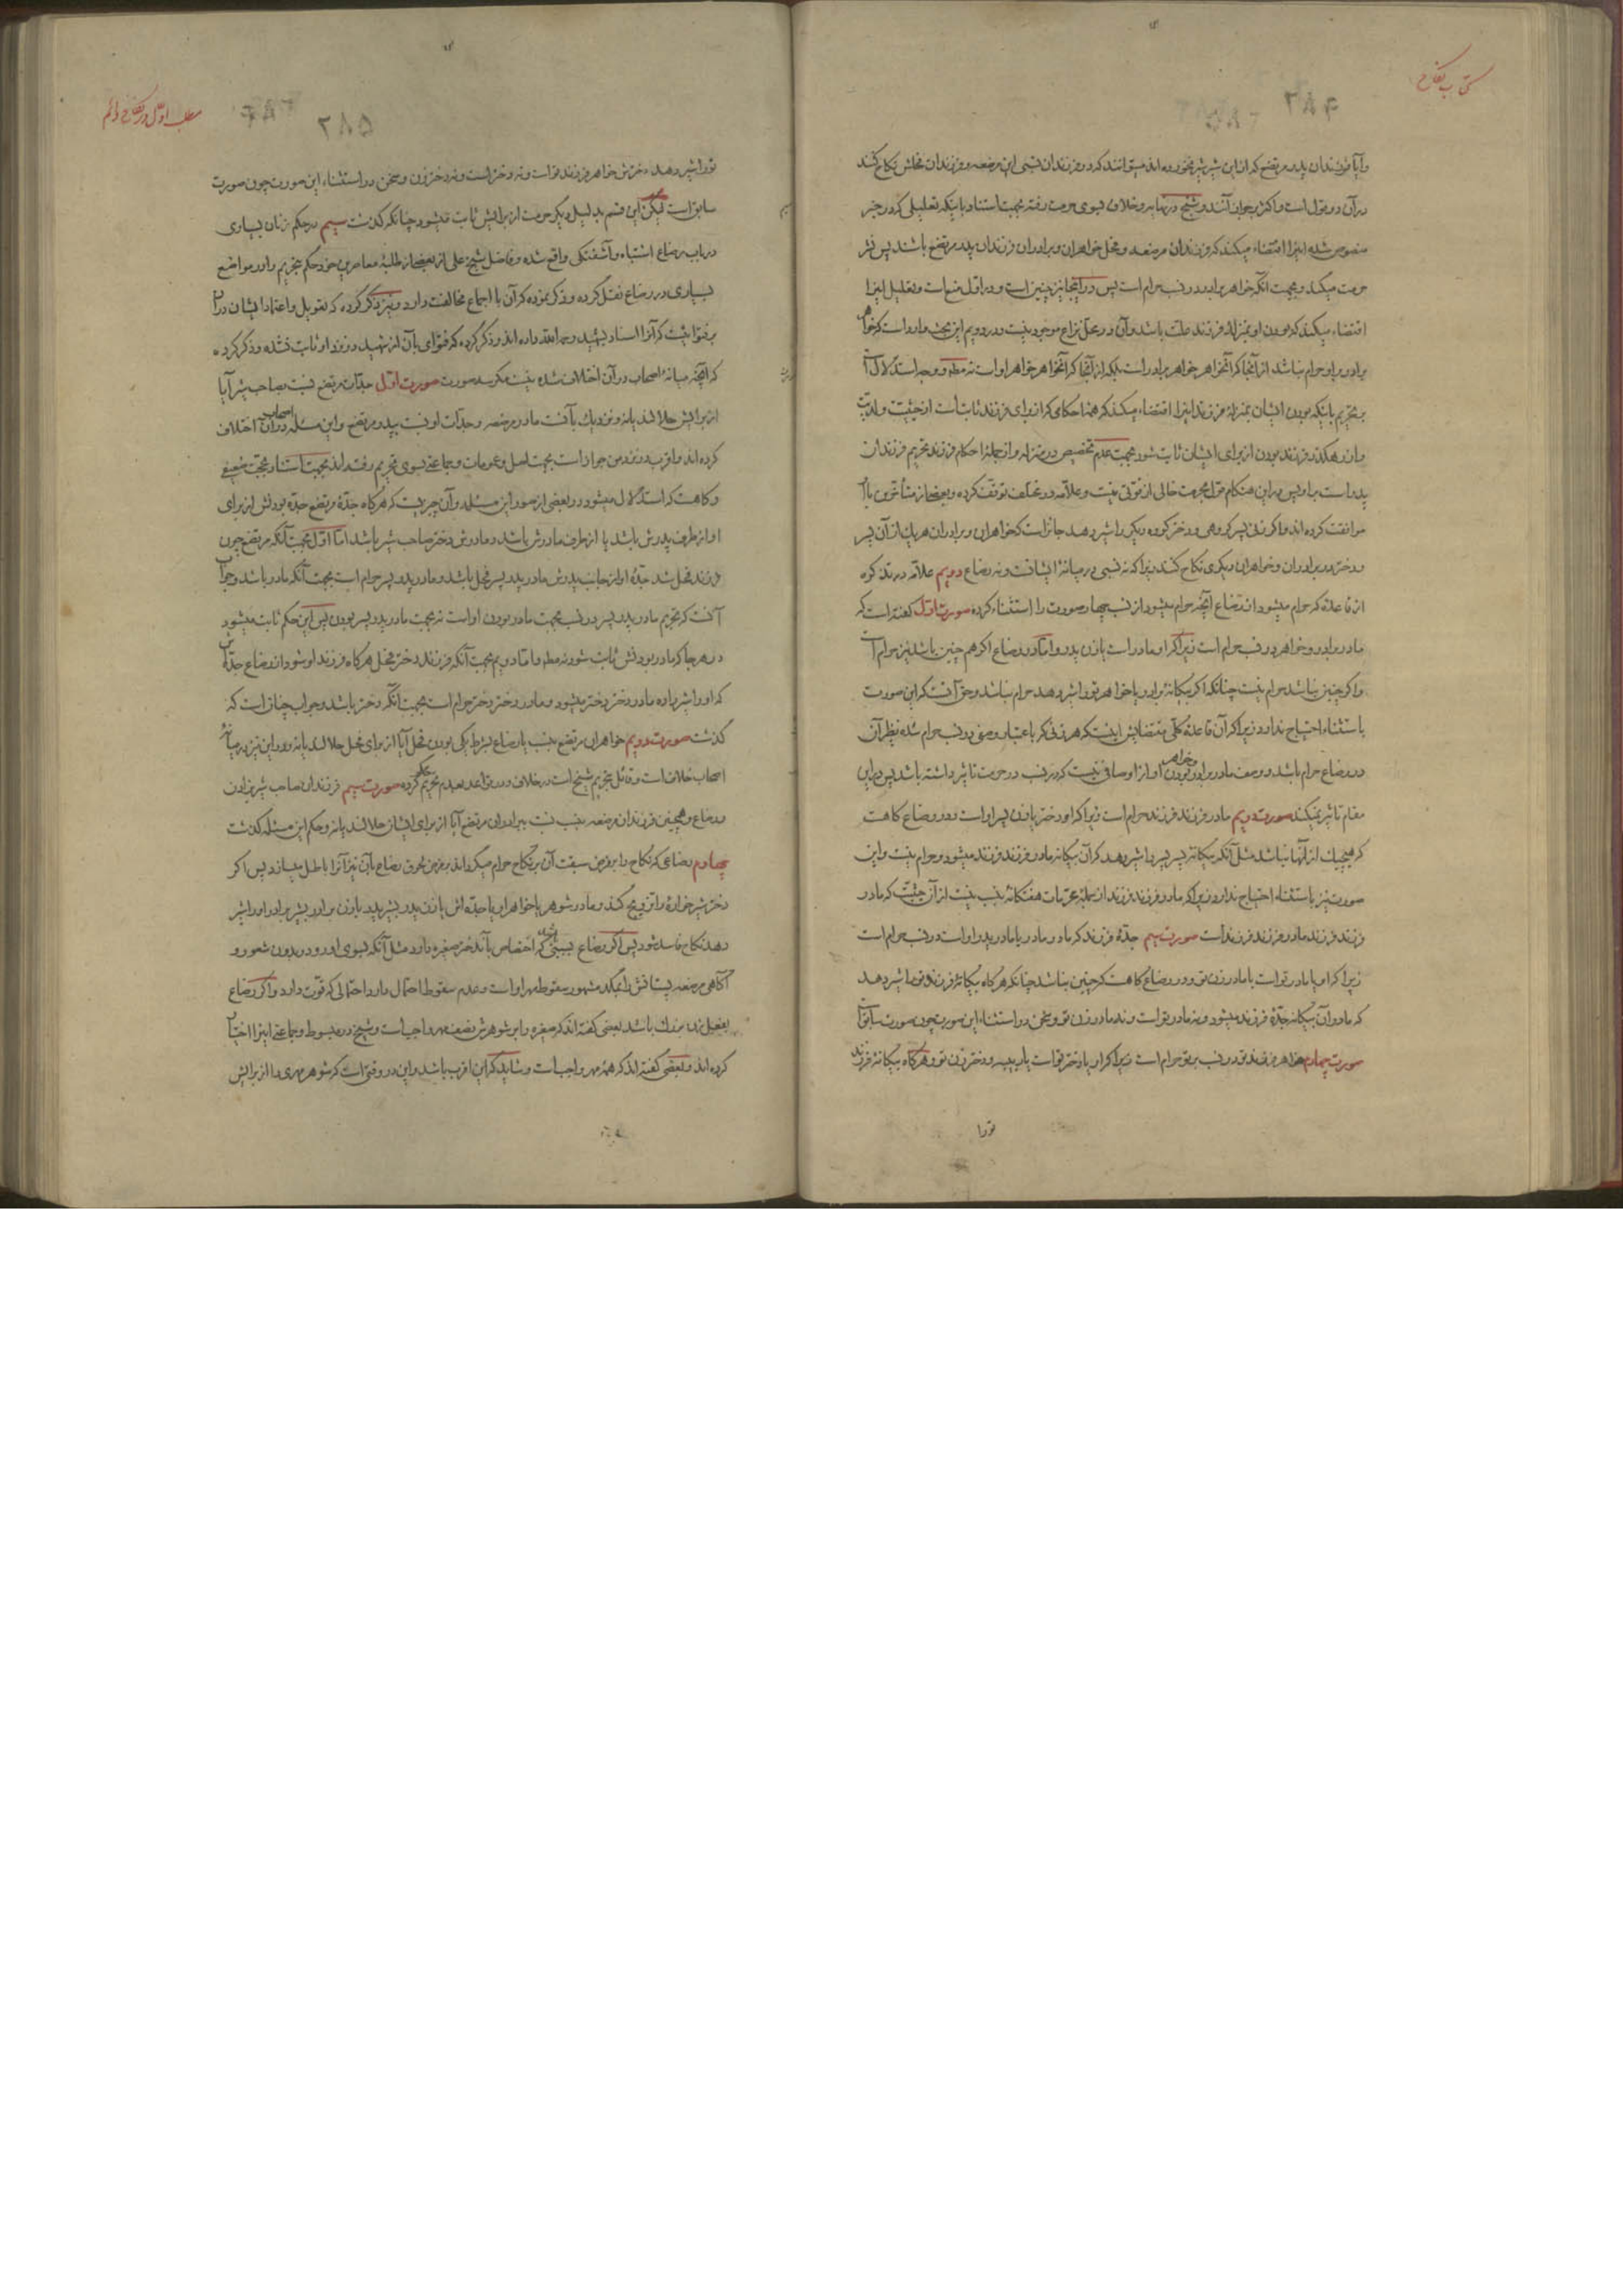 کتاب نکاح
وآیا فرزندان پدر مرتضع که از این شیر نخورده‌اند میتوانند که در فرزندان نسبی این مرضعه و فرزندان فحلش نکاح کنند
در آن دو قول است و اکثر بر جوازآنند و شیخ در نهایه و خلاف بسوی حرمت رفته بجهت استناد باینکه تعلیلی که در خبر
منصوص شده اینرا اقتضاء میکند که فرزندان مرضعه و فحل خواهران و برادران فرزندان پدر مرتضع باشند پس نشر
حرمت میکند و بجهت آنکه خواهر برادر در نسب حرام است پس در اینجا نیز چنین است و در اول منع است و تعلیل اینرا
اقتضاء میکند که بودن او بمنزلهٔ فرزند علت باشد و آن در محل نزاع موجود نیست و در دویم این بحث وارد است که خواهر
برادر بر او حرام نباشد از آنجا که آنخواهر خواهر برادر است بلکه از آنجا که آنخواهر خواهر او است نه مطم و وجه استدلال است
بر تحریم باینکه بودن ایشان بمنزلهٔ فرزند اینرا اقتضاء میکند که همهٔ احکامی که از برای فرزند ثابت است از حیثیت ولدیت
وان رهگذر فرزند بودن از برای ایشان ثابت شود بجهت عدم تخصیص در منزله و از جملهٔ احکام فرزند تحریم فرزندان
پدر است بر او پس در این هنگام قول بحرمت خالی از قوتی نیست و علامه در مختلف توقف کرده و بعضی از متأخرین باآن
موافقت کرده‌اند و اگر زنی پسر گروهی و دختر گروه دیگر را شیر دهد جایز است که خواهران و برادران هر یک از آن پسر
و دختر در برادران و خواهران دیگری نکاح کنند زیرا که نه نسبی در میانهٔ ایشانست و نه رضاع دویم علامه در تذکره
از قاعدهٔ که حرام میشود از رضاع آنچه حرام میشود از نسب چهار صورت را استثناء کرده صورت اول گفته است که
مادر برادر و خواهر در نسب حرام است زیرا که او مادر است یا زن پدر و اما در رضاع اگر هم چنین باشد نیز حرام است
و اگر چنین نباشد حرام نیست چنانکه اگر بیگانهٔ برادر یا خواهر تو را شیر دهد حرام نباشد و حق آنست که این صورت
باستثناء احتیاج ندارد زیرا که آن قاعدهٔ کلی مقتضایش اینست که هر زنی که باعتبار وصفی در نسب حرام شده نظیر آن
در رضاع حرام باشد و وصف مادر برادر و خواهر بودن او از اوصافی نیست که در نسب در حرمت تاثیر داشته باشد پس در این
مقام تاثیر نمیکند صورت دویم مادر فرزند فرزند حرام است زیرا که او دختر یا زن پسر او است و در رضاع گاهست
که هیچیک از آنها نباشد مثل آنکه بیگانه پسر پسر را شیر دهد که آن بیگانه مادر فرزند فرزند میشود و حرام نیست و این
صورت نیز باستثناء احتیاج ندارد زیرا که مادر فرزند فرزند از جملهٔ محرمات هفتگانهٔ نسب نیست از آن حیثیت که مادر
فرزند فرزند مادر فرزند فرزند است صورت سیم جدهٔ فرزند که مادر مادر یا مادر پدر او است در نسب حرام است
زیرا که او یا مادر تو است یا مادر زن تو و در رضاع گاهست که چنین نباشد چنانکه هرگاه بیگانهٔ فرزند تو را شیر دهد
که مادر آن بیگانه جدهٔ فرزند میشود و نه مادر تو است و نه مادر زن تو و سخن در استثناء این صورت چون صورت سابق است
صورت چهارم خواهر فرزند تو در نسب بر تو حرام است زیرا که او یا دختر تو است یا ربیبه و دختر زن تو و هرگاه بیگانهٔ فرزند
تو را
مطلب اول در نکاح دائم
۲۸۵
تو را شیر دهد دخترش خواهر فرزند تو است و نه دختر است و نه دختر زن و سخن در استثناء این صورت چون صورت
سابق است لیکن این قسم بدلیل دیگر حرمت از برایش ثابت میشود چنانکه گذشت سیم در حکم زنان بسیاری
در باب رضاع اشتباه و آشفتگی واقع شده و فاضل شیخ علی از بعضی از طلبهٔ معاصرین خود حکم بتحریم را در مواضع
بسیاری در رضاع نقل کرده و ذکر نموده که آن با اجماع مخالفت دارد و نیز ذکر کرده که تعویل و اعتماد ایشان در آن
بر فتوائیست که آنرا اسناد بشهید رحمه الله داده‌اند و ذکر کرده که فتوای بآن از شهید در نزد او ثابت نشده و ذکر کرده
که آنچه میانهٔ اصحاب در آن اختلاف شده نیست مگر سه صورت صورت اول جدات مرتضع نسبت بصاحب شیر آیا
از برایش حلالند یا نه و نزدیک بآنست مادر مرضعه و جدات او نسبت بپدر مرتضع و این مسئله در آن اصحاب اختلاف
کرده‌اند و اقرب در نزد من جواز است بجهت اصل و عمومات و جماعتی بسوی تحریم رفته‌اند بجهت استناد بحجت ضعیفی
و گاهست که استدلال میشود در بعضی از صور این مسئله و آن چیزیست که هرگاه جدهٔ مرتضع جده بودنش از برای
او از طرف پدرش باشد یا از طرف مادرش باشد و مادرش دختر صاحب شیر باشد اما اول بجهت آنکه مرتضع چون
فرزند فحل شد جدهٔ او از جانب پدرش مادر پدر پسر فحل باشد و مادر پدر پسر حرام است بجهت آنکه مادر باشد و جواب
آنست که تحریم مادر پدر پسر در نسب بجهت مادر بودن او است نه بجهت مادر پدر پسر بودن پس این حکم ثابت میشود
در هر جا که مادر بودنش ثابت شود نه مطم و اما دویم بجهت آنکه فرزند دختر فحل هرگاه فرزند او شود از رضاع جدهاش
که او را شیر داده مادر دختر دختر میشود و مادر دختر دختر حرام است بجهت آنکه دختر باشد و جواب چنان است که
گذشت صورت دویم خواهران مرتضع بنسب یا رضاع بشرط یکی بودن فحل آیا از برای فحل حلالند یا نه و در این نیز در میانهٔ
اصحاب خلاف است و قائل بتحریم شیخ است در خلاف و در قواعد بعدم تحریم حکم کرده صورت سیم فرزندان صاحب شیر بزادن
و رضاع و همچنین فرزندان مرضعه بنسب نسبت ببرادران مرتضع آیا از برای ایشان حلالند یا نه و حکم این مسئله گذشت
چهارم رضاعی که نکاح را بر فرض سبقت آن بر نکاح حرام میگرداند بر فرض لحوق رضاع بآن نیز آنرا باطل میسازد پس اگر
دختر شیرخوارهٔ را تزویج کند و مادر شوهر یا خواهر او یا جده‌اش یا زن پدر بشیر پدر یا زن برادر بشیر برادر او را شیر
دهد نکاح فاسد شود پس اگر رضاع بسببی باشد که اختصاص بآندختر صغیره دارد مثل آنکه بسوی او رود و بدون شعور و
آگاهی مرضعه پستانش را بمکد مشهور سقوط مهر او است و عدم سقوط احتمال دارد احتمالی که قوت دارد و اگر رضاع
بفعل زن بزرگ باشد بعضی گفته‌اند که صغیره را بر شوهرش نصف مهر واجب است و شیخ در مبسوط و جماعتی اینرا اختیار
کرده‌اند و بعضی گفته‌اند که همهٔ مهر واجب است و شاید که این اقرب باشد و این در وقتی است که شوهر مهری را از برایش